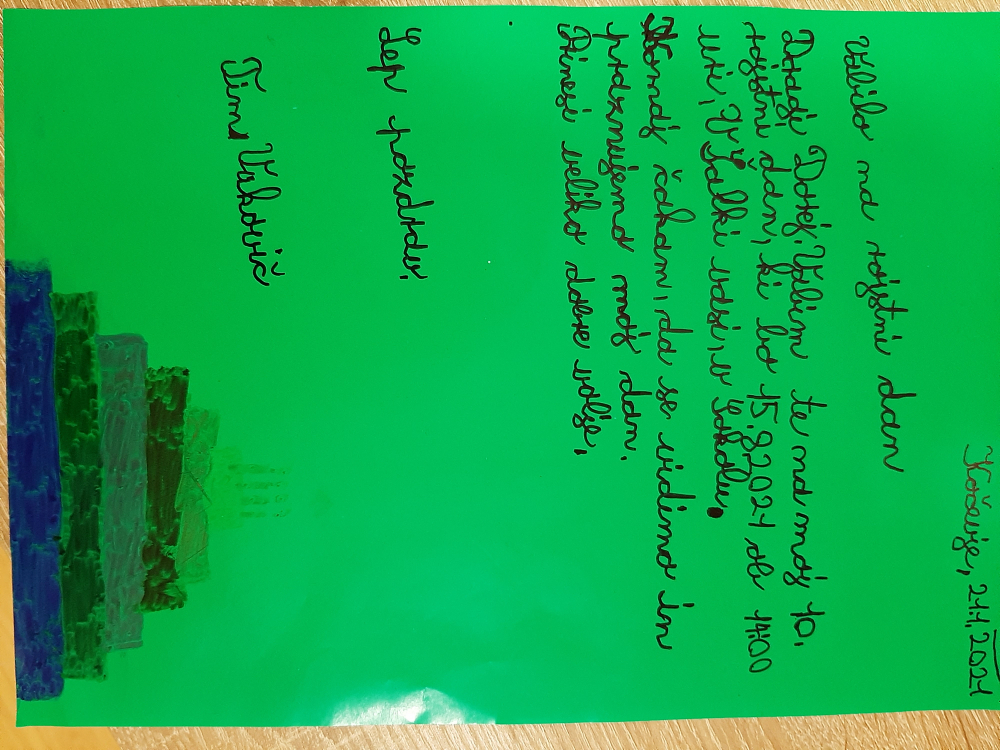 Kočevje, 21.1.2021
Vabilo na rojstni dan
Dragi Dorej. Vabim te na moj 10.
rojstni dan, ki bo 15.8.2021 ob 14:00
uri, v Šalki vasi, v Šokolu.
Komaj čakam, da se vidimo in
praznujemo moj dan.
Prinesi veliko dobre volje.
Lep pozdrav.
Tim Vukovič